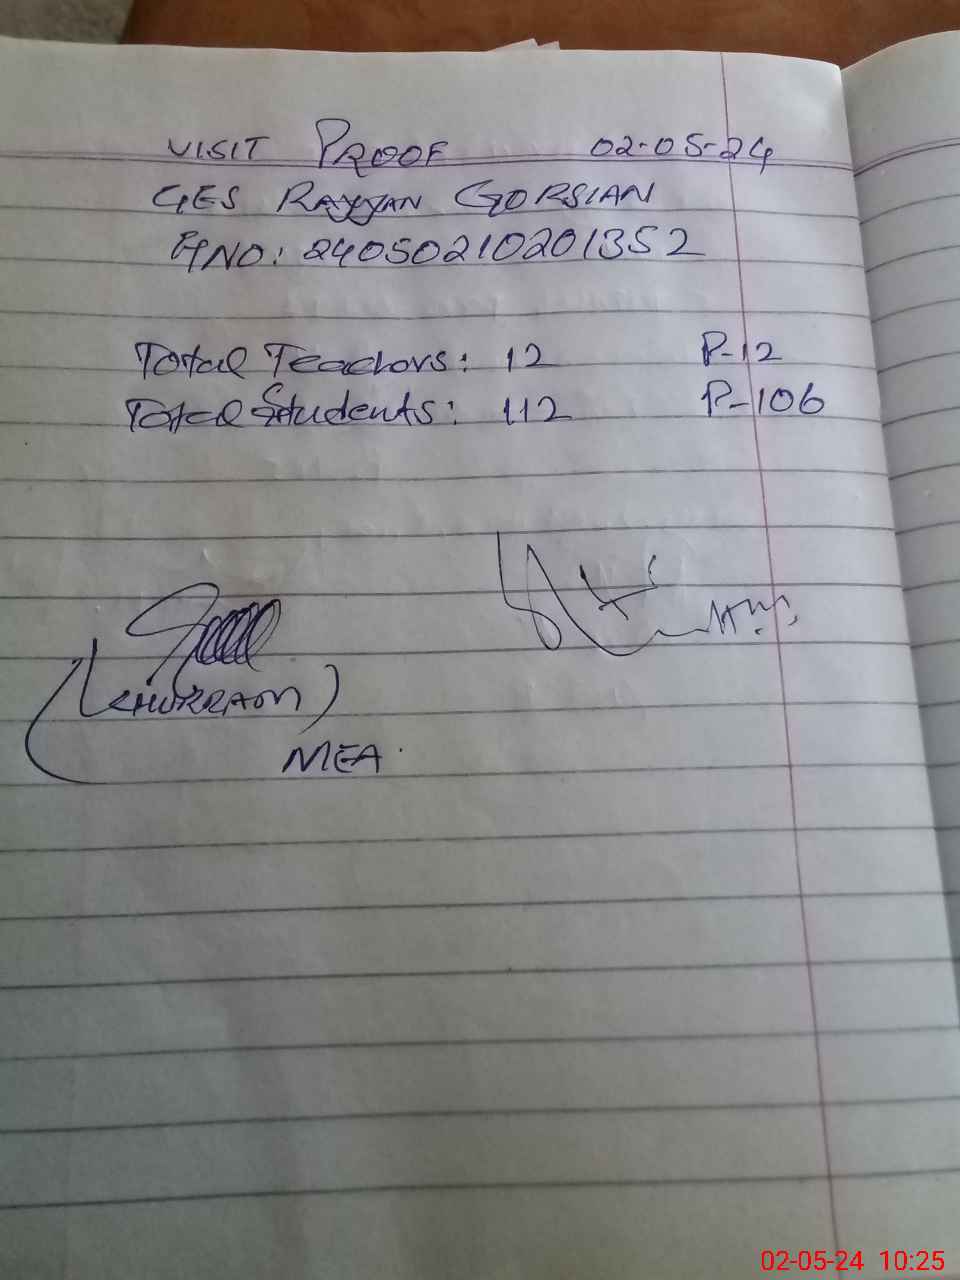 VISIT PROOF 02-05-24
GES RAYYAN GORSIAN
HNO: 24050210201352
Total Teachors: 12 P-12
Total Students: 112 P-106
(KHURRAM)
MEA.
02-05-24 10:25